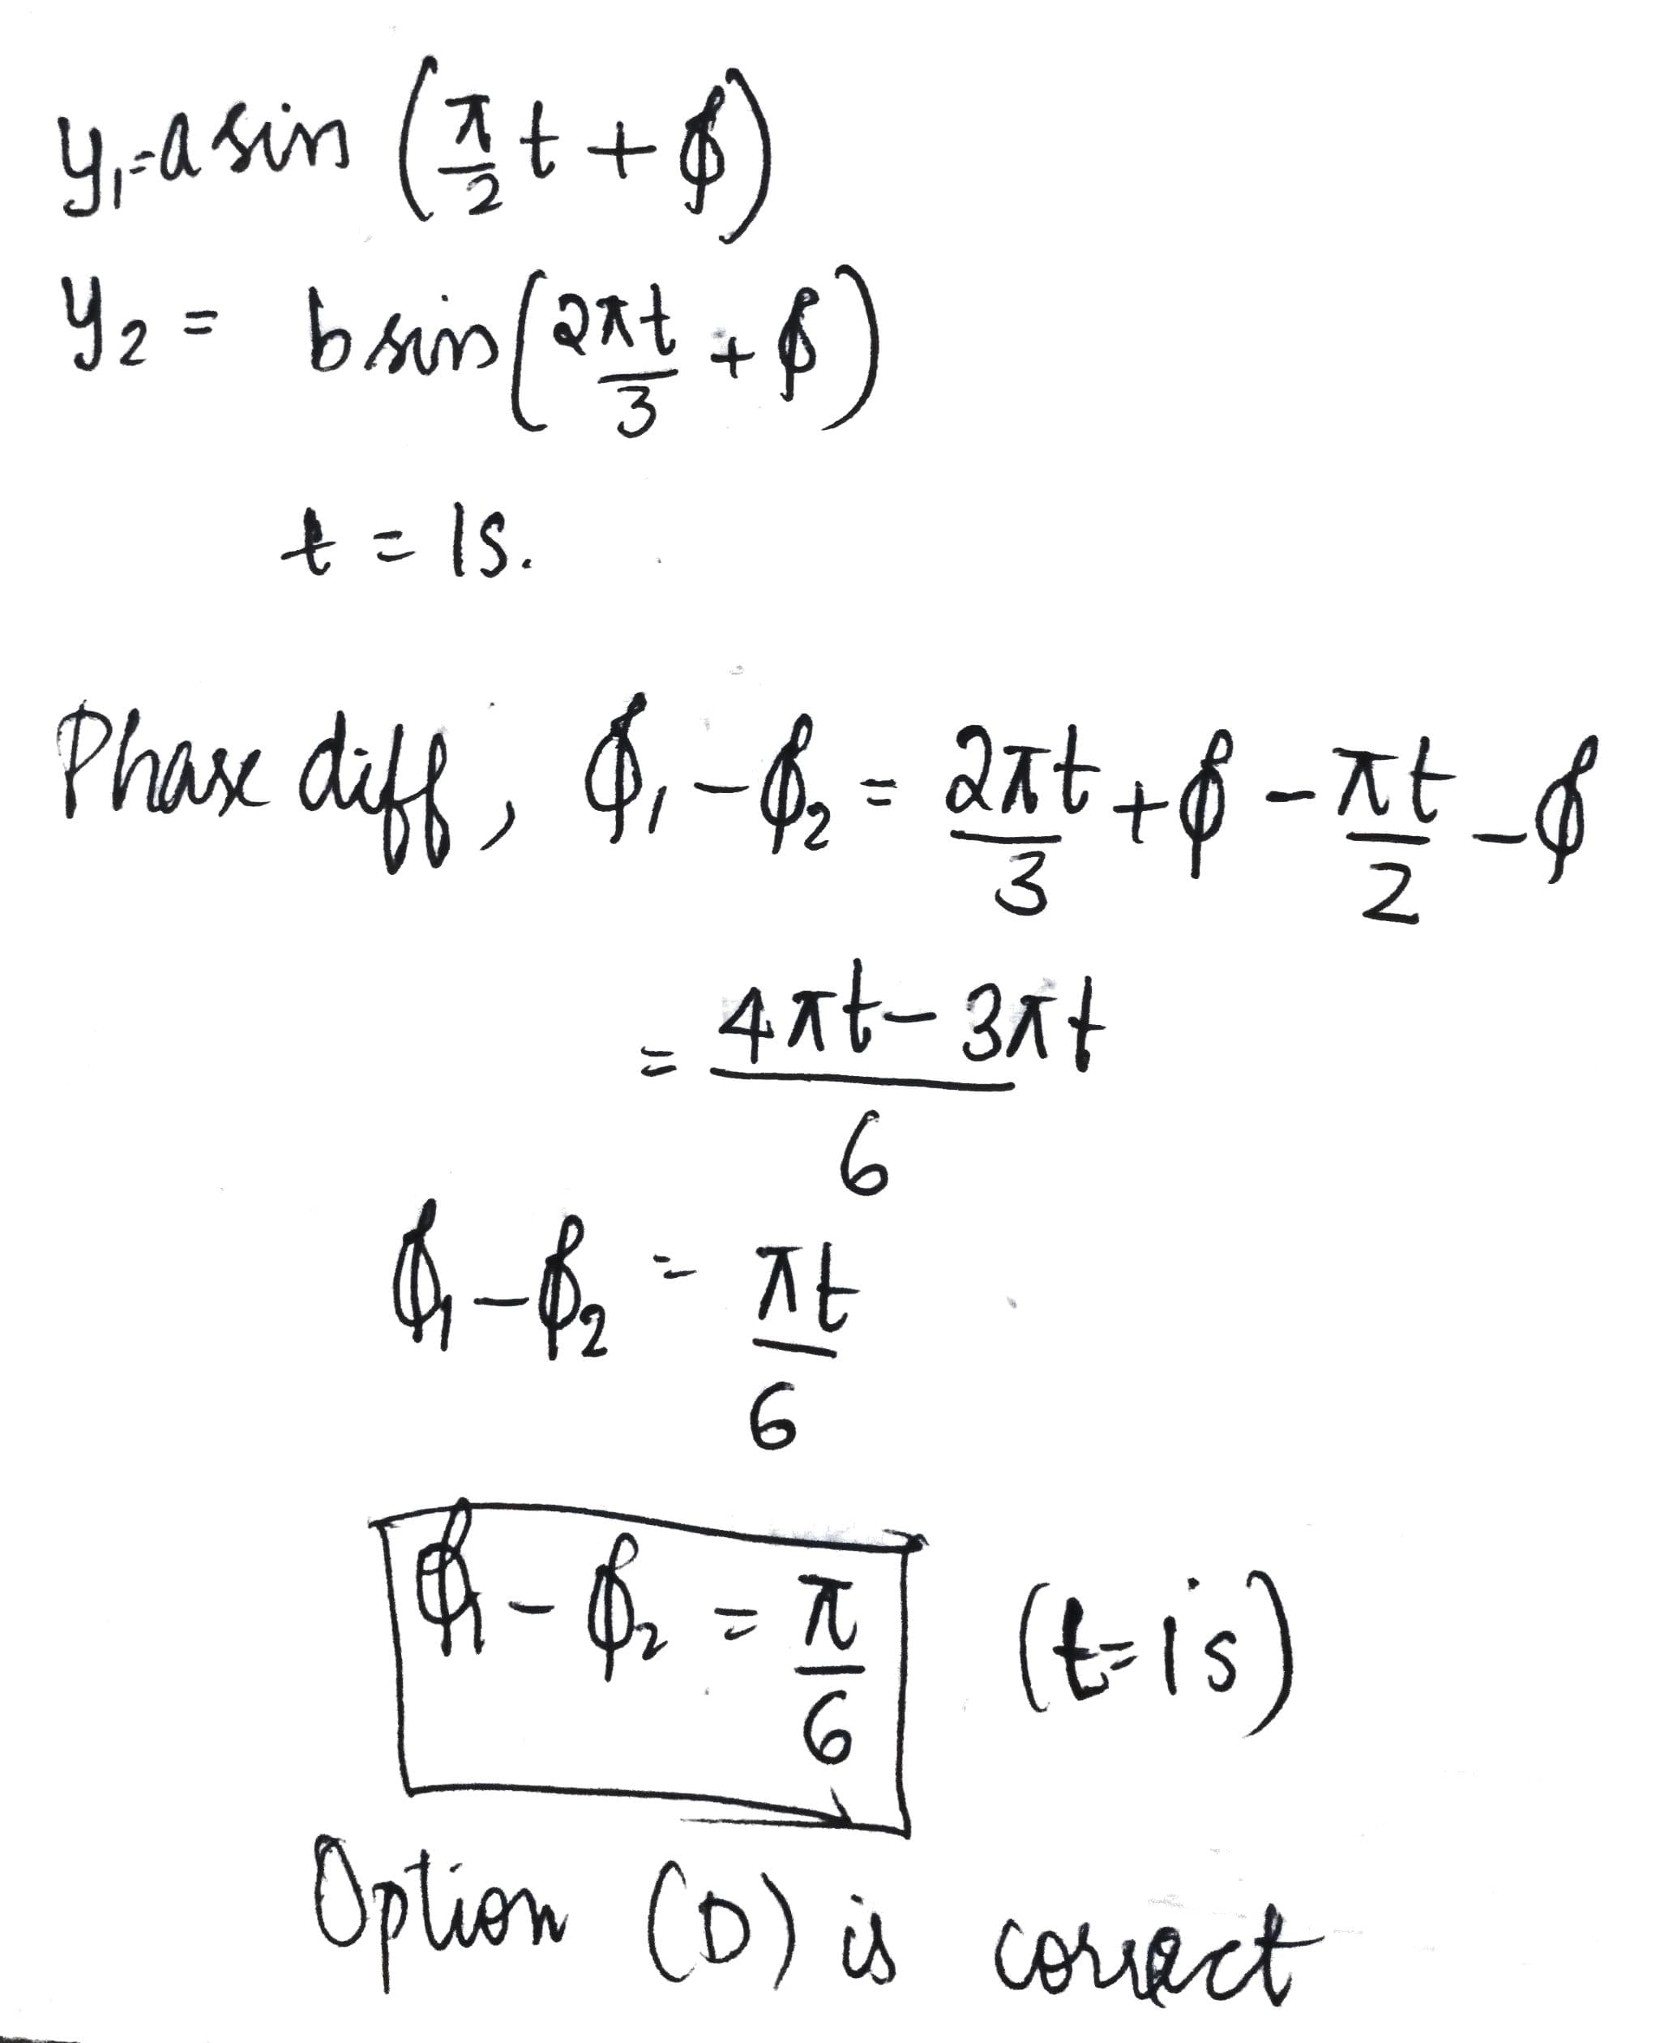 y₁=a sin (π/2 t + ϕ)
y₂ = b sin (2πt/3 + ϕ)
t = 1s.
Phase diff, ϕ₁ - ϕ₂ = 2πt/3 + ϕ - πt/2 - ϕ
= 4πt - 3πt/6
ϕ₁ - ϕ₂ = πt/6
ϕ₁ - ϕ₂ = π/6 (t=1s)
Option (D) is correct